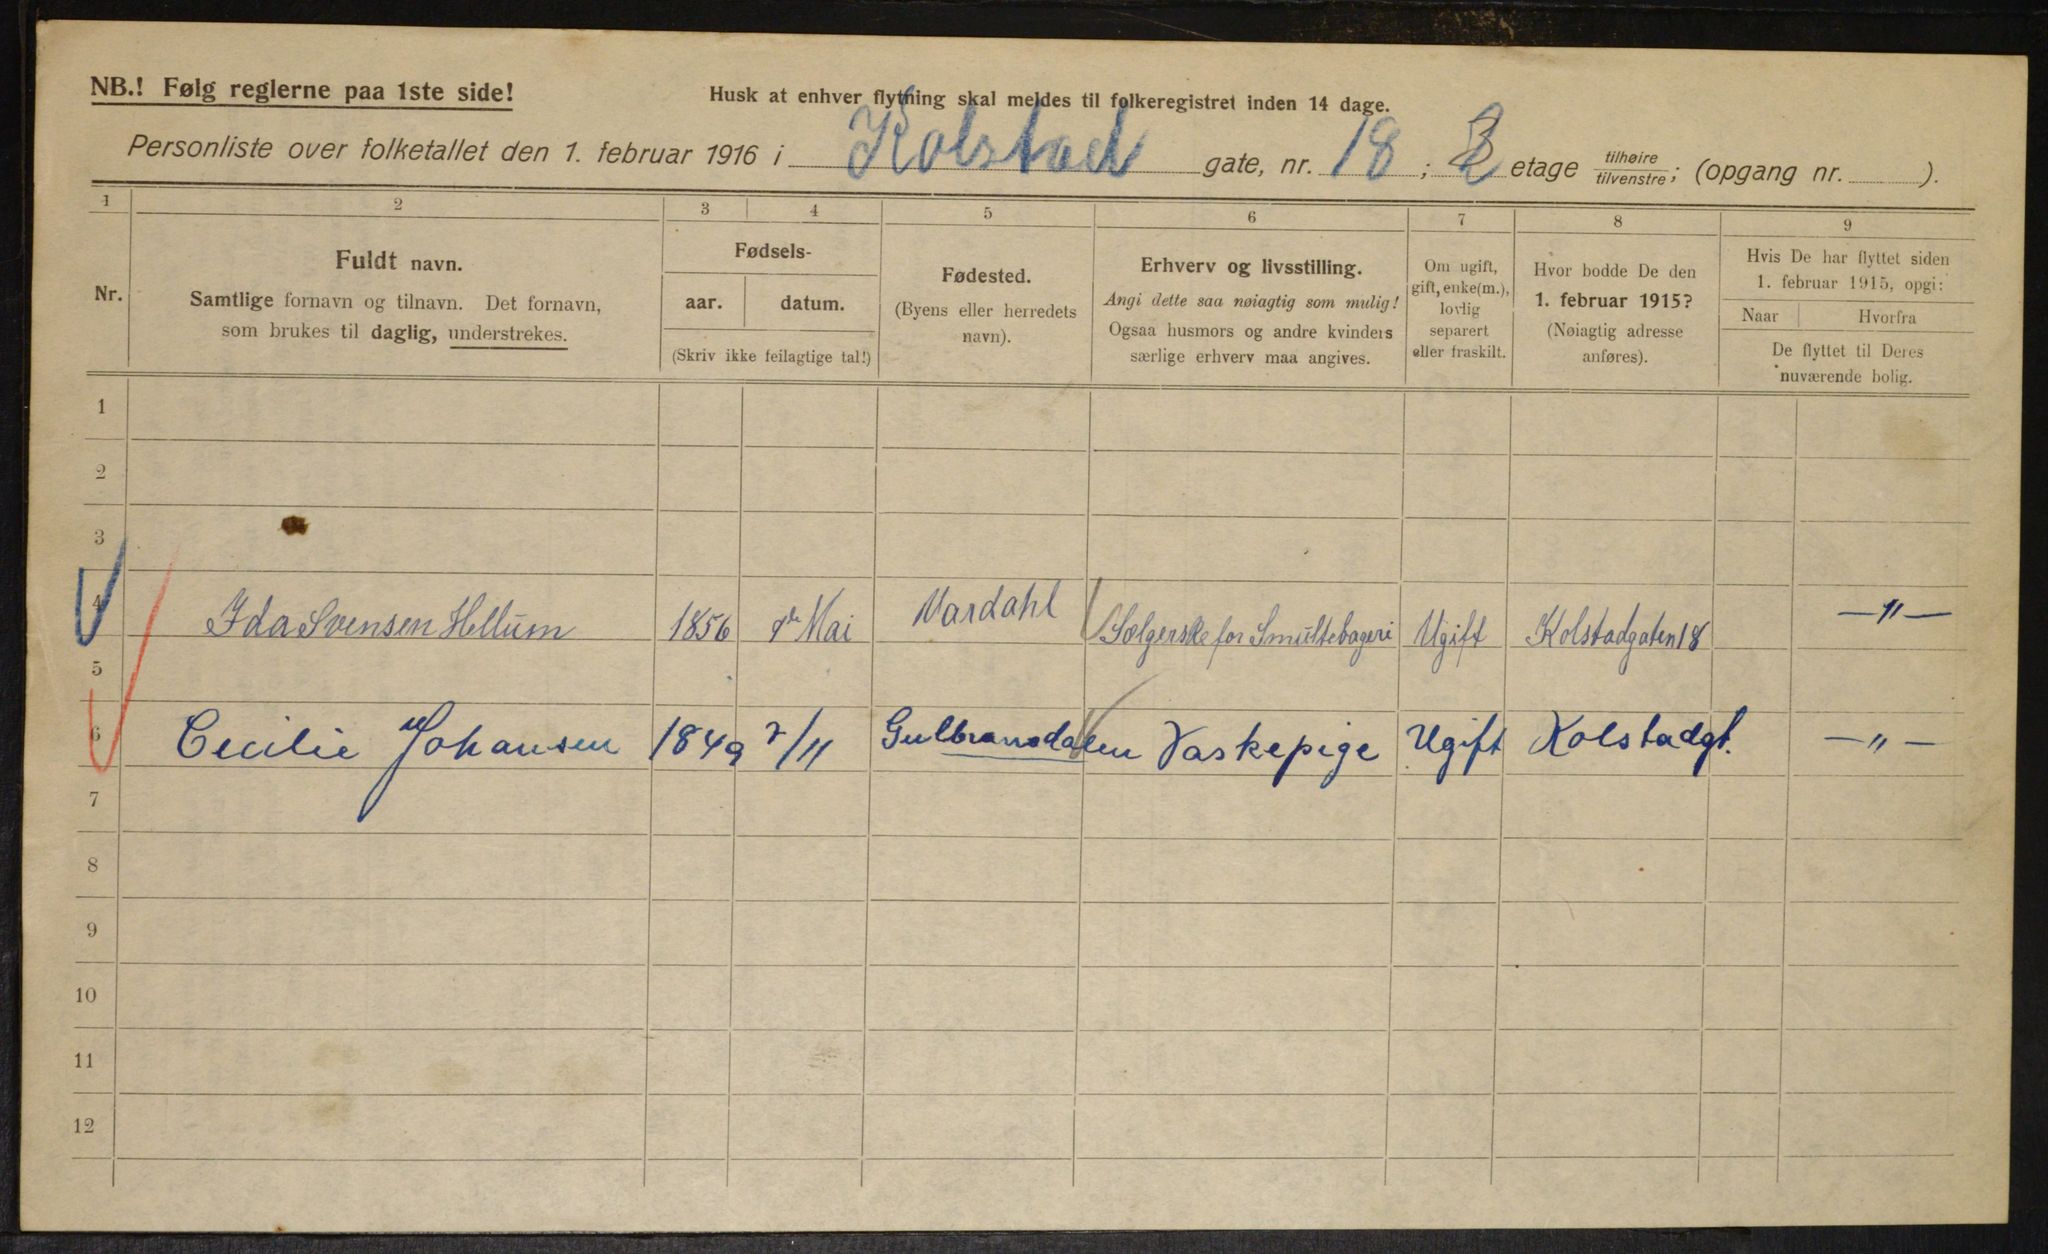 NB.! Følg reglerne paa 1ste side!
Husk at enhver flytning skal meldes til folkeregistret inden 14 dage.
Personliste over folketallet den 1. februar 1916 i Kolstad gate, nr. 18; etage tilhøire tilvenstre; (opgang nr. ).
1 2 3 4 5 6 7 8 9
Nr.
Fuldt navn.
Samtlige fornavn og tilnavn. Det fornavn,
som brukes til daglig, understrekes.
Fødsels-
aar. datum.
(Skriv ikke feilagtige tal!)
Fødested.
(Byens eller herredets
navn).
Erhverv og livsstilling.
Angi dette saa nøiagtig som mulig!
Ogsaa husmors og andre kvinders
særlige erhverv maa angives.
Om ugift,
gift, enke(m.),
lovlig
separert
eller fraskilt.
Hvor bodde De den
1. februar 1915?
(Nøiagtig adresse
anføres).
Hvis De har flyttet siden
1. februar 1915, opgi:
Naar Hvorfra
De flyttet til Deres
nuværende bolig.
1
2
3
4 Ida Svensen Hellum 1856 Mai Vardahl Sælgerske for Smultebageri Ugift Kolstadgaten 18 —"—
5
6 Cecilie Johansen 1849 7/11 Gulbransdalen Vaskepige Ugift Kolstadgt. —"—
7
8
9
10
11
12